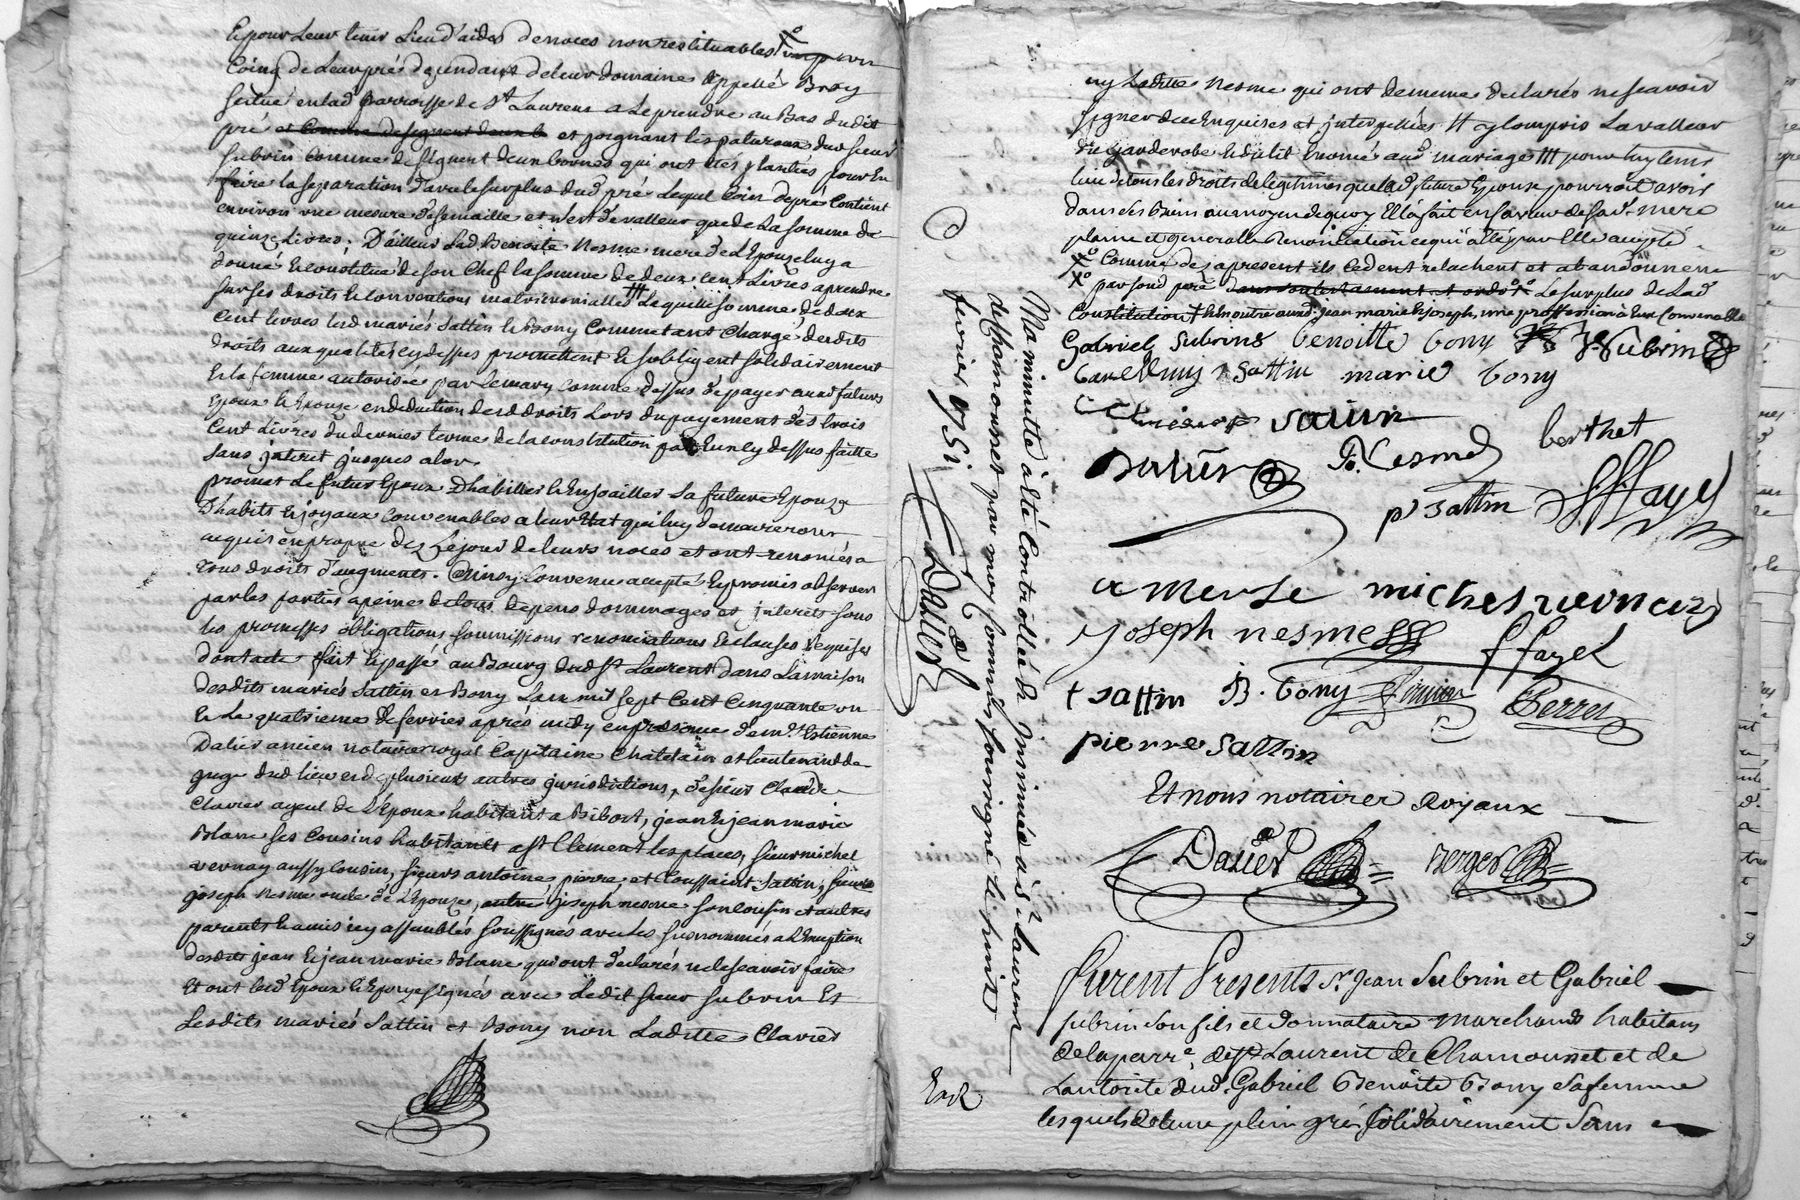 et pour leur tenir lieu d'aides de noces non restituables un
Coing de leur pré dependant de leur domaine appellé Bray
scitué en lad parroisse de St Laurens a le prendre au Bas dudit
pré et comme designent deux b et joignant les patureaux dud sieur
subrin comme designent deux bornes qui ont étés plantées pour en
faire la separation d'avec le surplus dud pré lequel Coin de pré Contient
environ une mesure de semaille et n'est de valleur que de la somme de
quinze livres. D'ailleur Lad. Benoite Nesme mere de L'Epouze luy a
donné et constitué de son chef la somme de deux cent livres a prendre
sur ses droits et conventions matrimonialles ttt Laquelle somme de deux
cent livres lesd mariés Sattin et Bony Comme étant chargé desdits
droits aux qualités cy dessus promettent et s'obligent solidairement
et la femme autorisée par le mary comme dessus de payer aux futurs
Epoux et Epouze en deduction desd droits lors du payement des trois
Cent livres du dernier terme de la constitution par eux cy dessus faitte
sans jnteret jusques alor.
promet le futur Epoux d'habiller et enjoailler sa future Epouze
D'habits et joyaux convenables a leur Etat qui luy demeureront
acquis en propre dez le jour de leurs noces et ont renoncés a
tous droits d'augments. Ainsy convenu accepté et promis observer
par les parties a peines de tous depens dommages et jnterets sous
les promesses obligations soumissions renonciations et clauses requises
dont acte fait et passé au Bourg dud St Laurent dans la maison
desdits mariés Sattin et Bony l'an mil sept Cent Cinquante un
et le quatrieme de fevrier aprés midy en presence de mr Estienne
Dalier ancien notaire royal Capitaine Chatelain et lieutenant de
juge dud lieu et de plusieurs autres jurisdictions, de sieur Claude
Clavier ayeul de L'Epoux habitant a Bibost, jean et jean marie
Blanc ses cousins habitants a St Clement les places, sieur michel
vernay aussy cousin, sieurs antoine pierre et toussaint Sattin, sieur
joseph Nesme oncle de L'Epouze, autre joseph nesme son cousin et autres
parents et amis icy assemblés soussignés avec les susnommés a L'Exception
desdits jean et jean marie Blanc qui ont declarés ne le scavoir faire
et ont lesd Epoux et Epouze signés avec Ledit sieur subrin et
Lesdits mariés Sattin et Bony non Laditte Clavier
ny Laditte Nesme qui ont de meme declarés ne scavoir
signer de ce Enquises et jnterpellées. tt y compris la valleur
du garderobe au mariage ttt pour luy tenir
lieu de tous les droits de legitimes que lad future Epouze pourroit avoir
dans ses biens au moyen de quoy Ell'a fait en faveur de sad. mere
plaine et generalle Renonciation ce qui a été par elle accepté
Comme dez a present ils cedent relachent et abandonnent
par sond pere Le surplus de Lad
Constitution jean marie et joseph, une proffession à Eux Convenable
Gabriel Subrin benoitte bony J. Subrin
Sattin marie bony
Saunir
Dalier J. Nesme berthet
p sattin Fayel
a Merle michel vernaiz
joseph nesme f fayel
t sattin B. bony Perret
pierre sattin
Et nous notaires Royaux
Dalier Berger
Ma minutte à été Controllée et Insinuée à St Laurent
de chamousset par moy commis soussigné le huit
fevrier 1751
Dalier
furent Presents Sr. Jean Subrin et Gabriel
subrin son fils et donnataire marchands habitans
de la parre. de St Laurent de Chamousset et de
L'autorité dud. Gabriel Benoite Bony sa femme
lesquels de leur plein gré solidairement sans